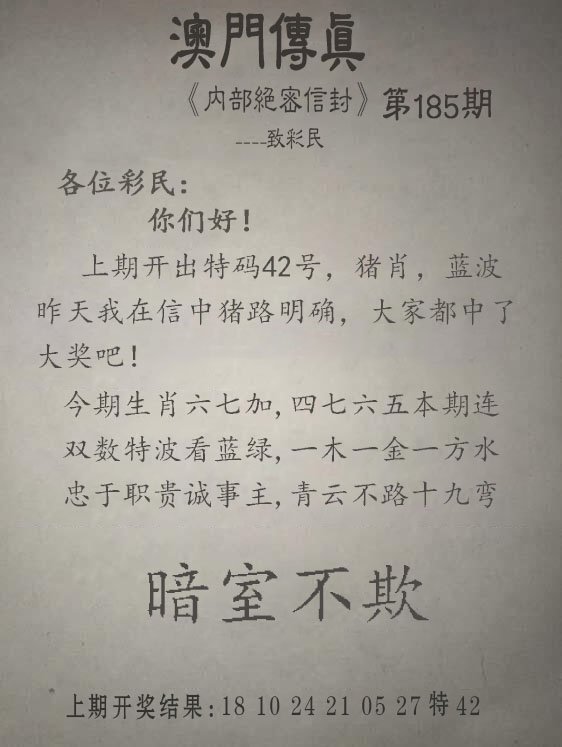 澳門傳真
《内部絕密信封》第185期
----致彩民
各位彩民:
你们好!
上期开出特码42号,猪肖,蓝波
昨天我在信中猪路明确,大家都中了
大奖吧!
今期生肖六七加,四七六五本期连
双数特波看蓝绿,一木一金一方水
忠于职贵诚事主,青云不路十九弯
暗室不欺
上期开奖结果:18 10 24 21 05 27特42